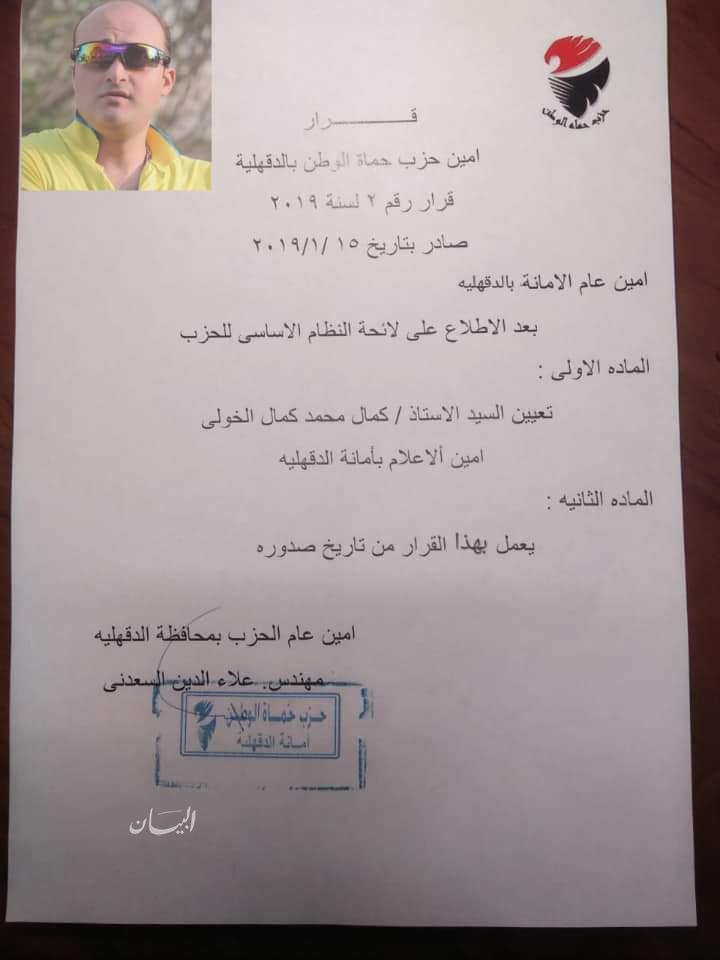 حزب حماة الوطن
قـــــــــرار
امين حزب حماة الوطن بالدقهلية
قرار رقم ٢ لسنة ٢٠١٩
صادر بتاريخ ١٥ /٢٠١٩/١
امين عام الامانة بالدقهليه
بعد الاطلاع على لائحة النظام الاساسى للحزب
الماده الاولى :
تعيين السيد الاستاذ / كمال محمد كمال الخولى
امين ألاعلام بأمانة الدقهليه
الماده الثانيه :
يعمل بهذا القرار من تاريخ صدوره
امين عام الحزب بمحافظة الدقهليه
مهندس. علاء الدين السعدنى
حزب حماة الوطن
امانة الدقهلية
البيان